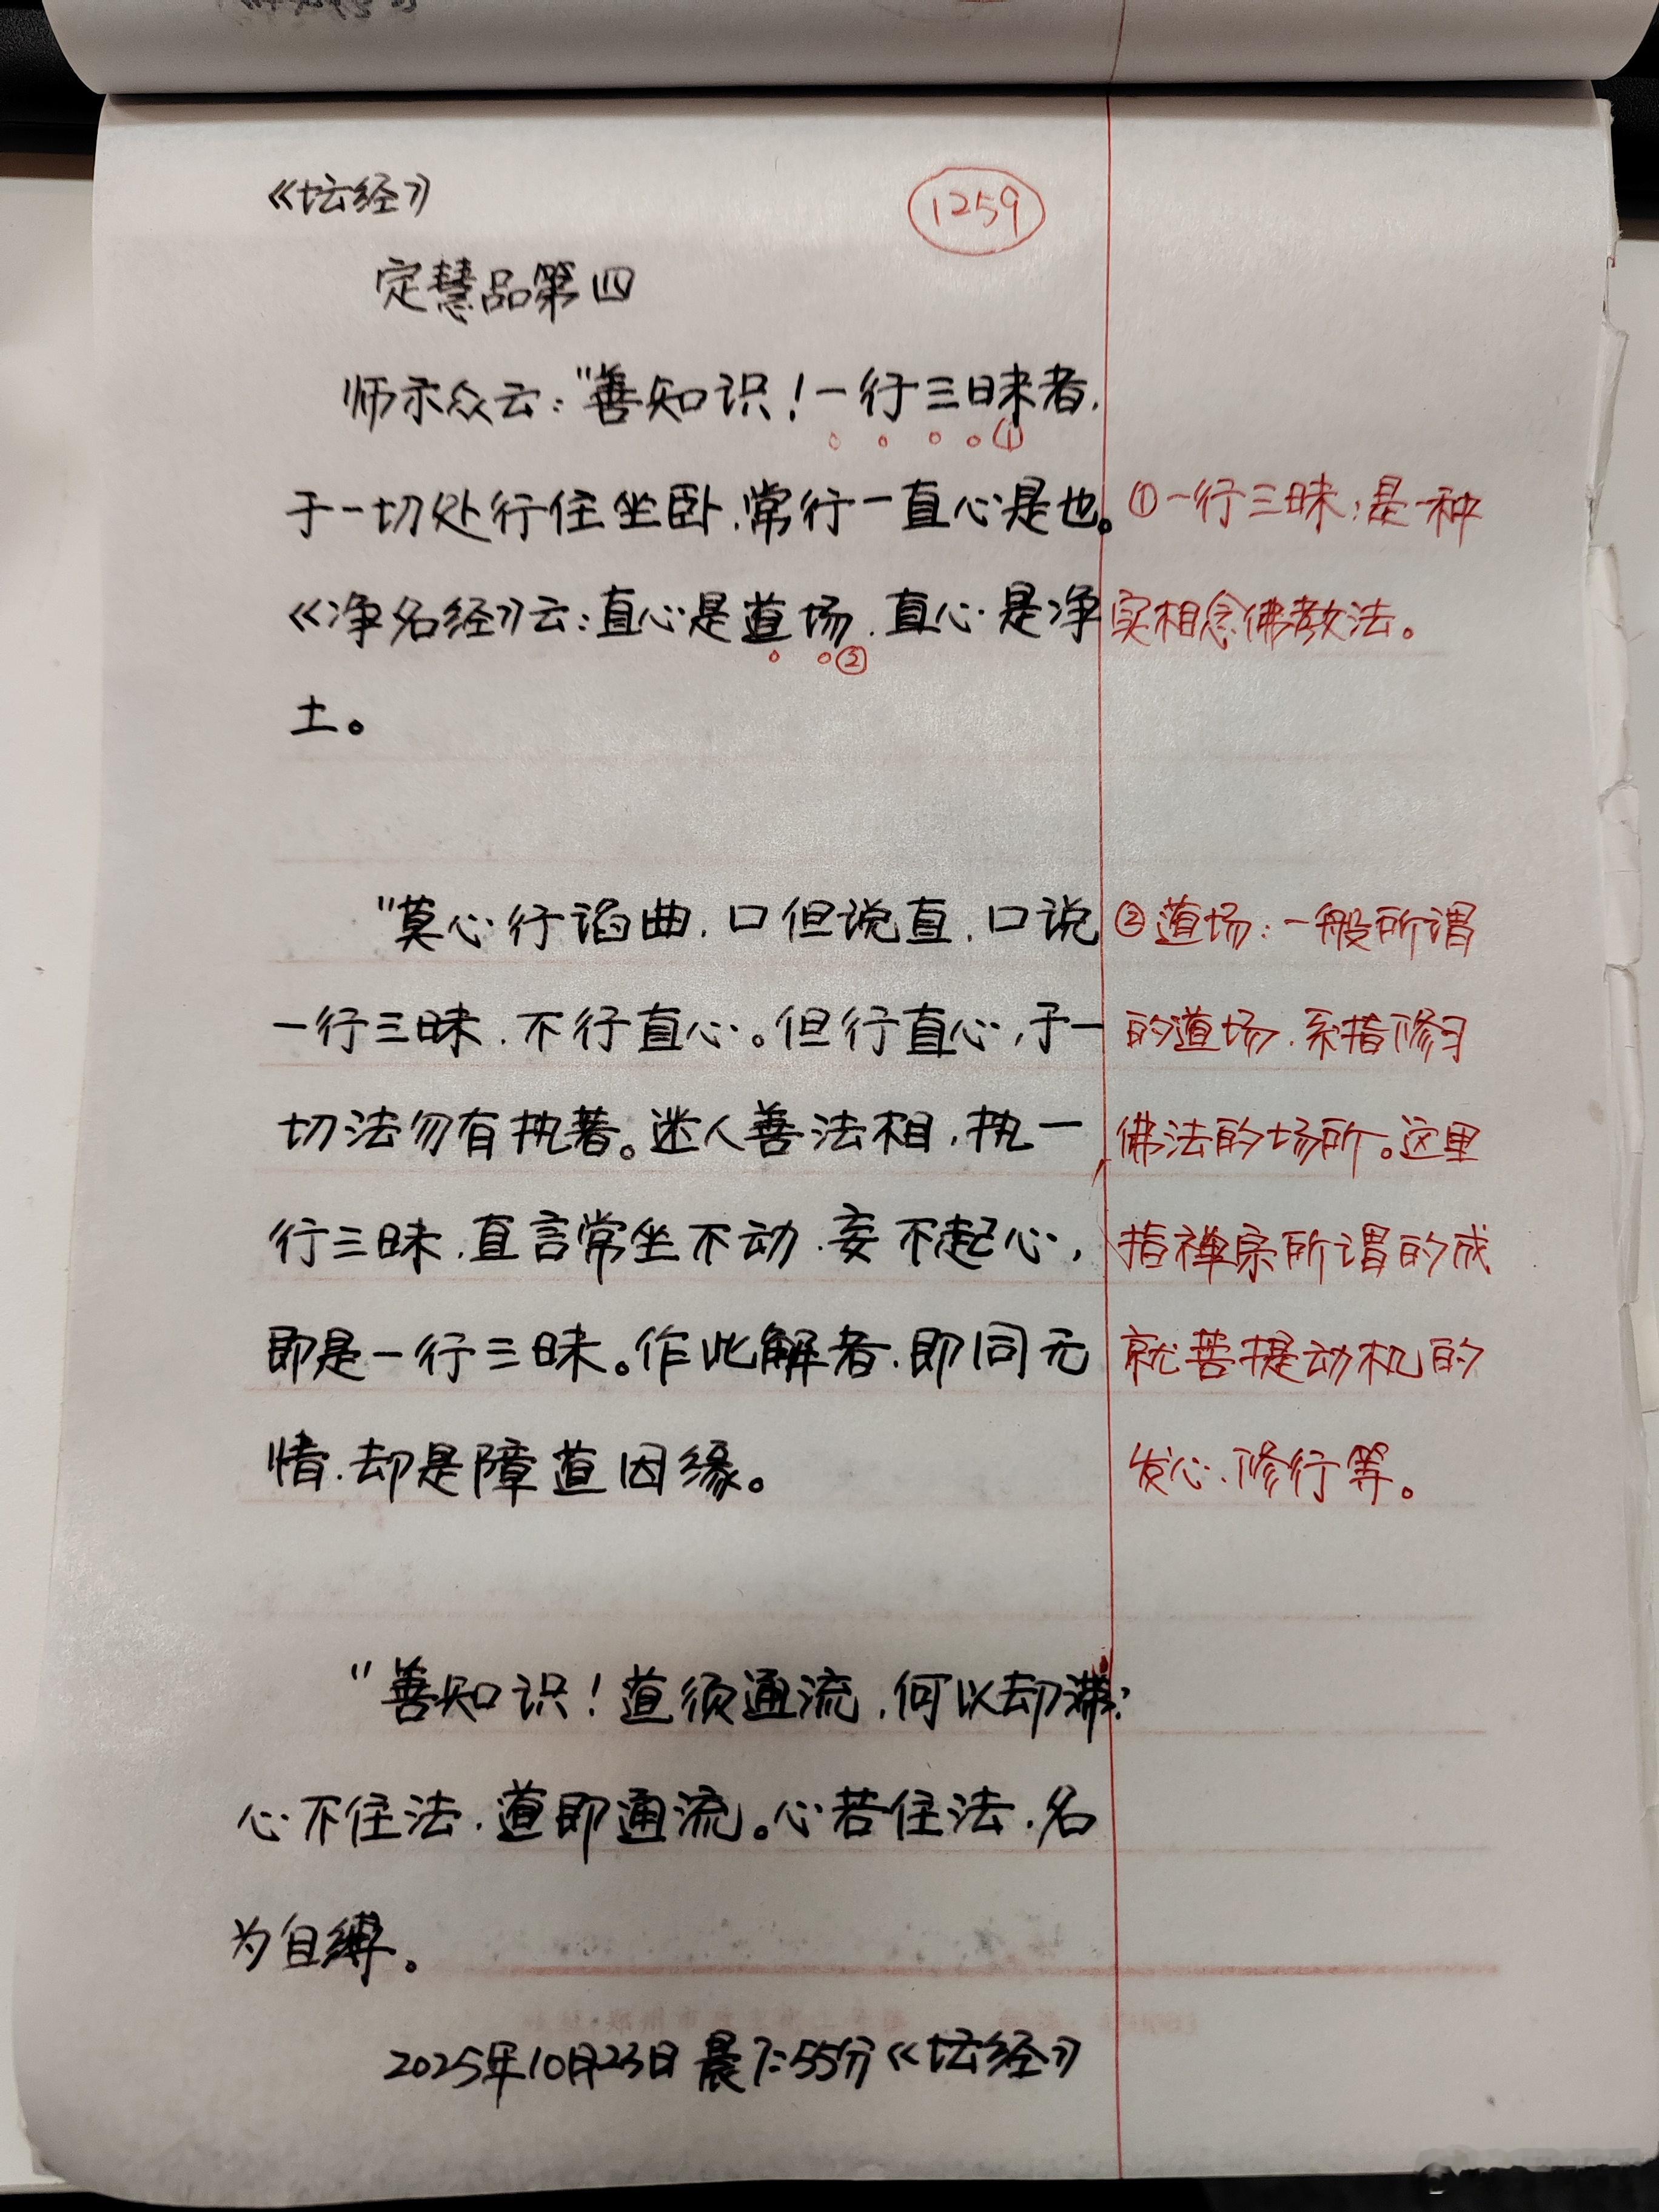 《坛经》
1259
定慧品第四
师示众云：“善知识！一行三昧者，
①
于一切处行住坐卧，常行一直心是也。
《净名经》云：直心是道场，直心是净
②
土。
“莫心行谄曲，口但说直，口说
一行三昧，不行直心。但行直心，于一
切法勿有执著。迷人善法相，执一
行三昧，直言常坐不动，妄不起心，
即是一行三昧。作此解者，即同无
情，却是障道因缘。
“善知识！道须通流，何以却滞？
心不住法，道即通流。心若住法，名
为自缚。
①一行三昧：是一种
实相念佛教法。
②道场：一般所谓
的道场，系指修习
佛法的场所。这里
指禅宗所谓的成
就菩提动机的
发心、修行等。
2025年10月23日晨7:55分《坛经》